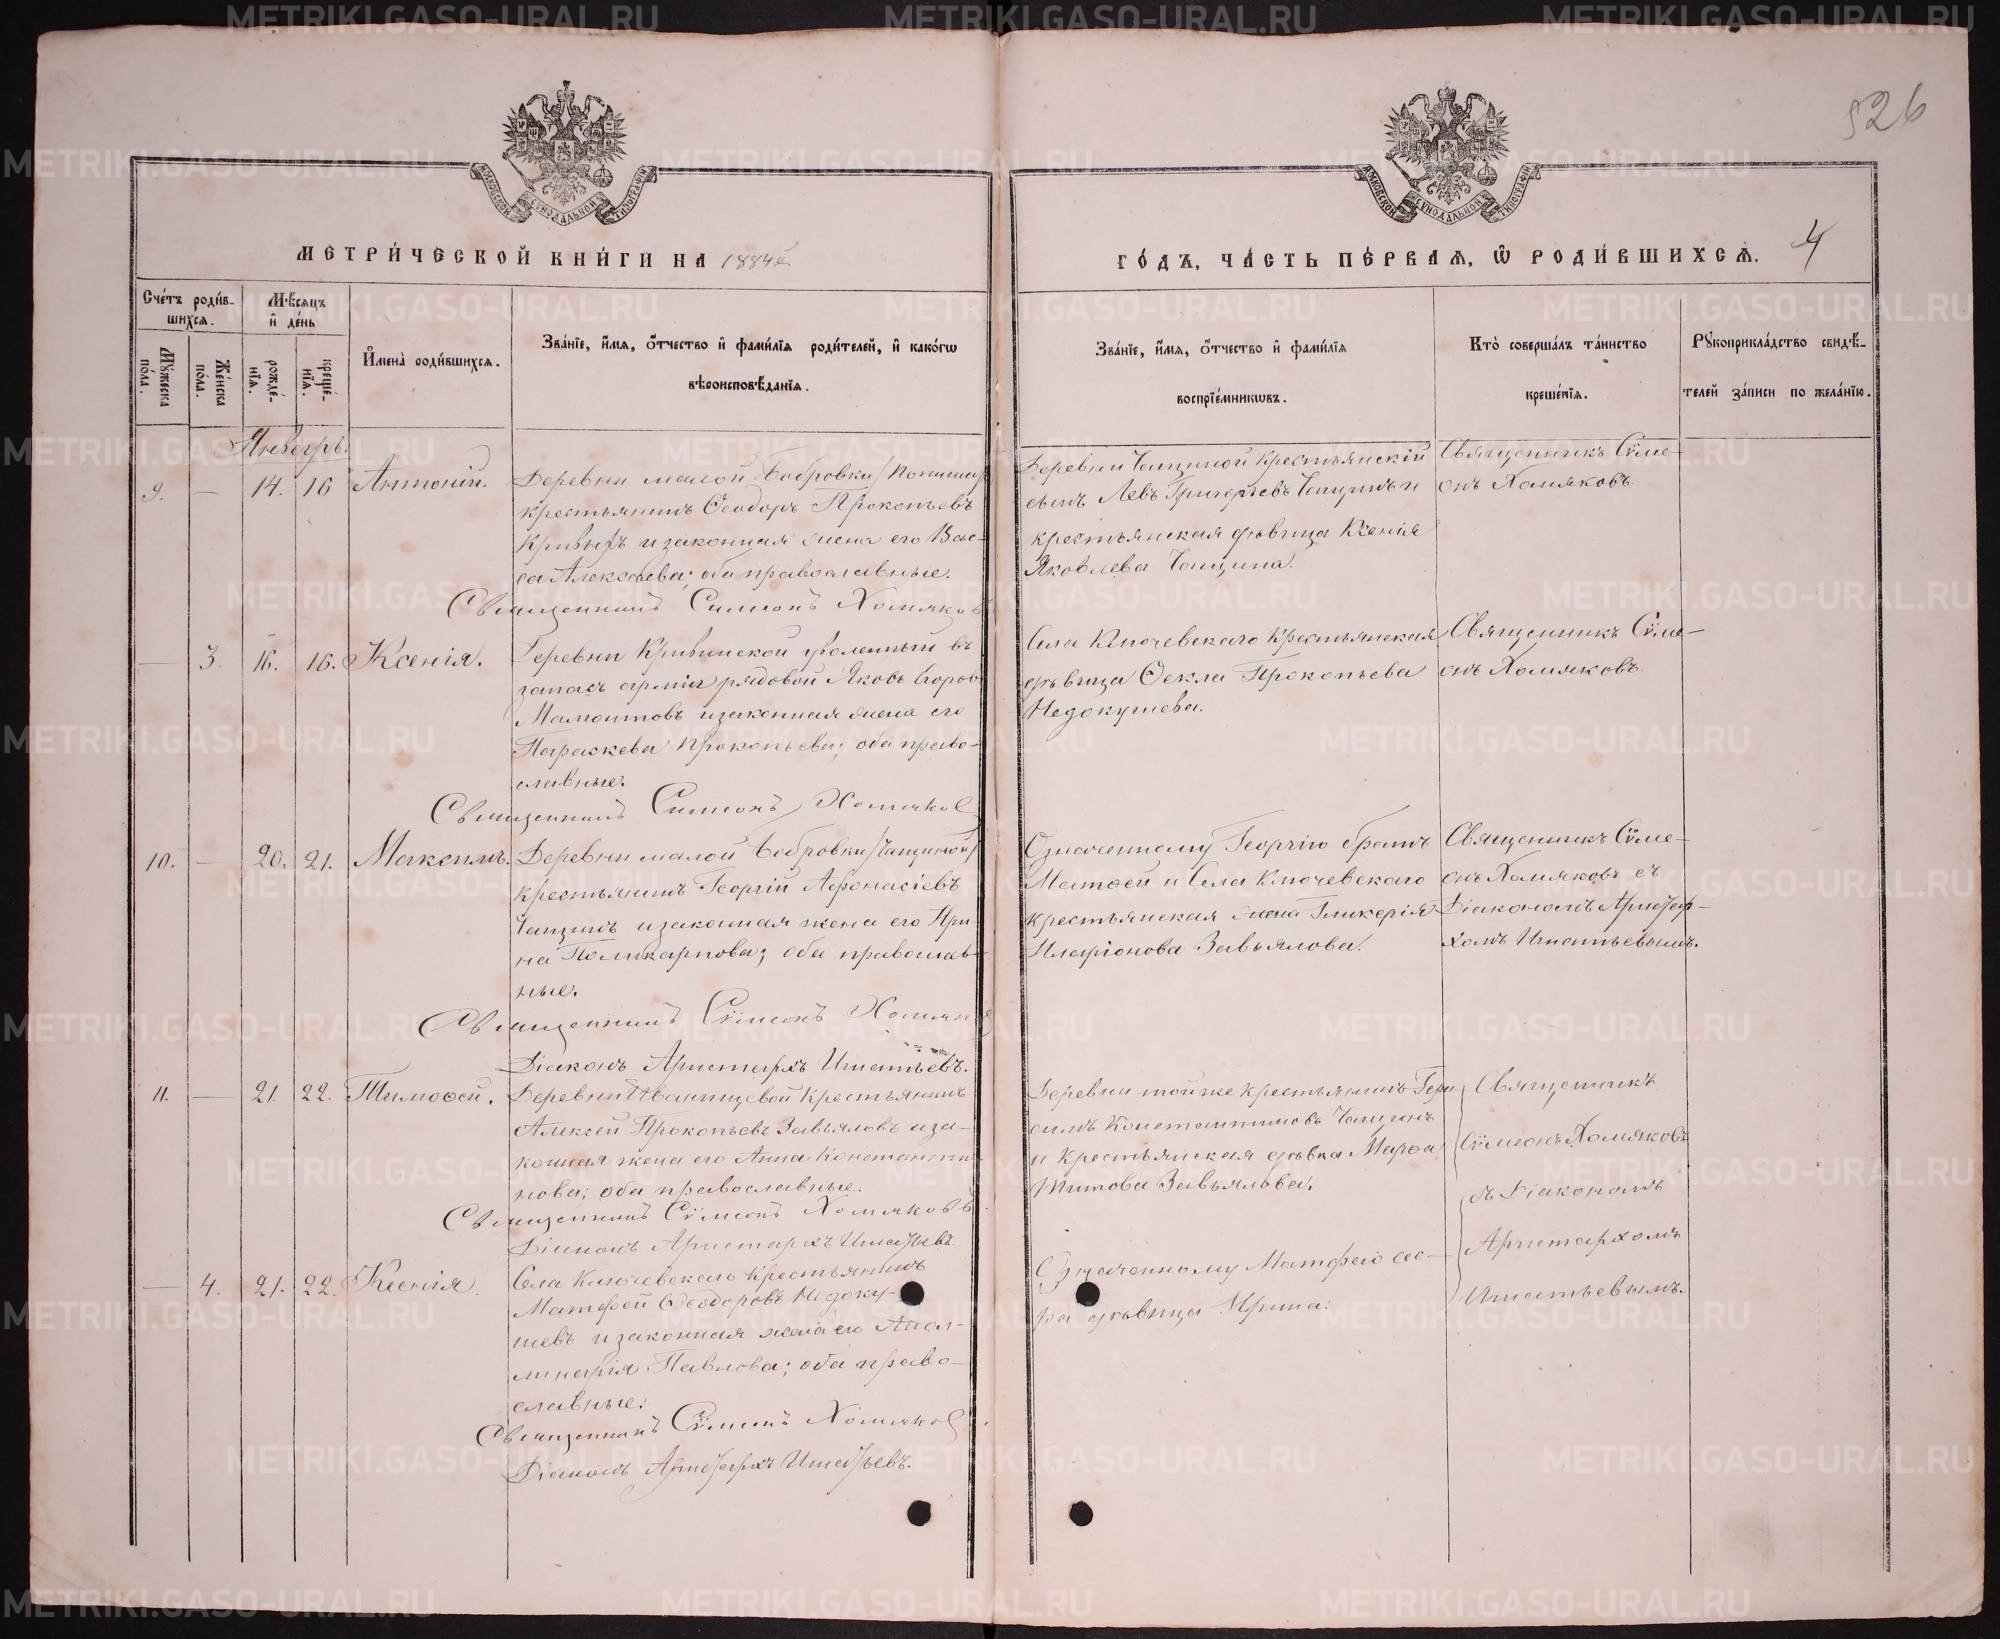 526
МОСКОВСКОЙ СѴНОДАЛЬНОЙ ТИПОГРАФІИ
МОСКОВСКОЙ СѴНОДАЛЬНОЙ ТИПОГРАФІИ
МЕТРИ́ЧЕСКОЙ КНИ́ГИ НА 1884й
ГО́ДЪ, ЧА́СТЬ ПЕ́РВАЯ, Ѡ РОДИ́ВШИХСЯ. 4
Сче́тъ роди́в-
шихся.
Му́жеска по́ла.
Же́нска по́ла.
Мѣ́сяцъ и де́нь
рожде́-
нїя.
креще́-
нїя.
И҆мена̀ роди́вшихся.
Зва́нїе, и҆́мя, о҆́тчество и҆ фами́лїя роди́телей, и҆ како́гѡ
вѣроисповѣ́данїя.
Зва́нїе, и҆́мя, о҆́тчество и҆ фами́лїя
воспрїе́мникѡвъ.
Кто̀ соверша́лъ та́инство
креще́нїя.
Рꙋкоприкла́дство свидѣ́-
телей за́писи по жела́нїю.
Январь.
9. — 14. 16 Антоній.
Деревни малой Бобровки
крестьянинъ Ѳеодоръ Прокопьевъ
Кривыхъ и законная жена его Вас-
са Алексѣева; оба православные.
Священникъ Симеонъ Хомяковъ
Деревни Чащиной крестьянскій
сынъ Левъ Григорьевъ Чащинъ и
крестьянская дѣвица Ксенія
Яковлева Чащина.
Священникъ Сѵме-
онъ Хомяковъ
— 3. 16. 16. Ксенія.
Деревни Кривинской уволенный въ
запасъ арміи рядовой Яковъ Егоровъ
Мамонтовъ и законная жена его
Параскева Прокопьева; оба право-
славные.
Священникъ Симеонъ Хомяков
Села Ключевскаго крестьянская
дѣвица Ѳекла Прокопьева
Недокушева.
Священникъ Сѵме-
онъ Хомяковъ
10. — 20. 21. Максимъ.
Деревни малой Бобровки /Чащиной/
крестьянинъ Георгій Аѳонасіевъ
Чащинъ и законная жена его Ири-
на Поликарпова; оба православ-
ные.
Священникъ Сѵмеонъ Хомяков
Діаконъ Аристархъ Игнатьевъ.
Означенному Георгію братъ
Матѳей и Села Ключевскаго
крестьянская жена Гликерія
Иларіонова Завьялова.
Священникъ Сѵме-
онъ Хомяковъ съ
Діакономъ Аристар-
хомъ Игнатьевымъ.
11. — 21. 22. Тимоѳей.
Деревни Иванищевой Крестьянинъ
Алексѣй Прокопьевъ Завьяловъ и за-
конная жена его Анна Константи-
нова; оба православные.
Священникъ Сѵмеонъ Хомяковъ
Діаконъ Аристархъ Игнатьевъ
Деревни той же крестьянинъ Гера-
симъ Константиновъ Чащинъ
и Крестьянская дѣвка Марѳа
Титова Завьялова.
Священникъ
Сѵмеонъ Хомяковъ
съ Діакономъ
Аристархомъ
Игнатьевымъ.
— 4. 21. 22. Ксенія.
Села Ключевскаго Крестьянинъ
Матѳей Ѳеодоровъ Недоку-
шевъ и законная жена его Апол-
линарія Павлова; оба право-
славные.
Священникъ Сѵмеонъ Хомяков
Діаконъ Аристархъ Игнатьевъ.
Означенному Матѳею сес-
ра дѣвица Ирина.